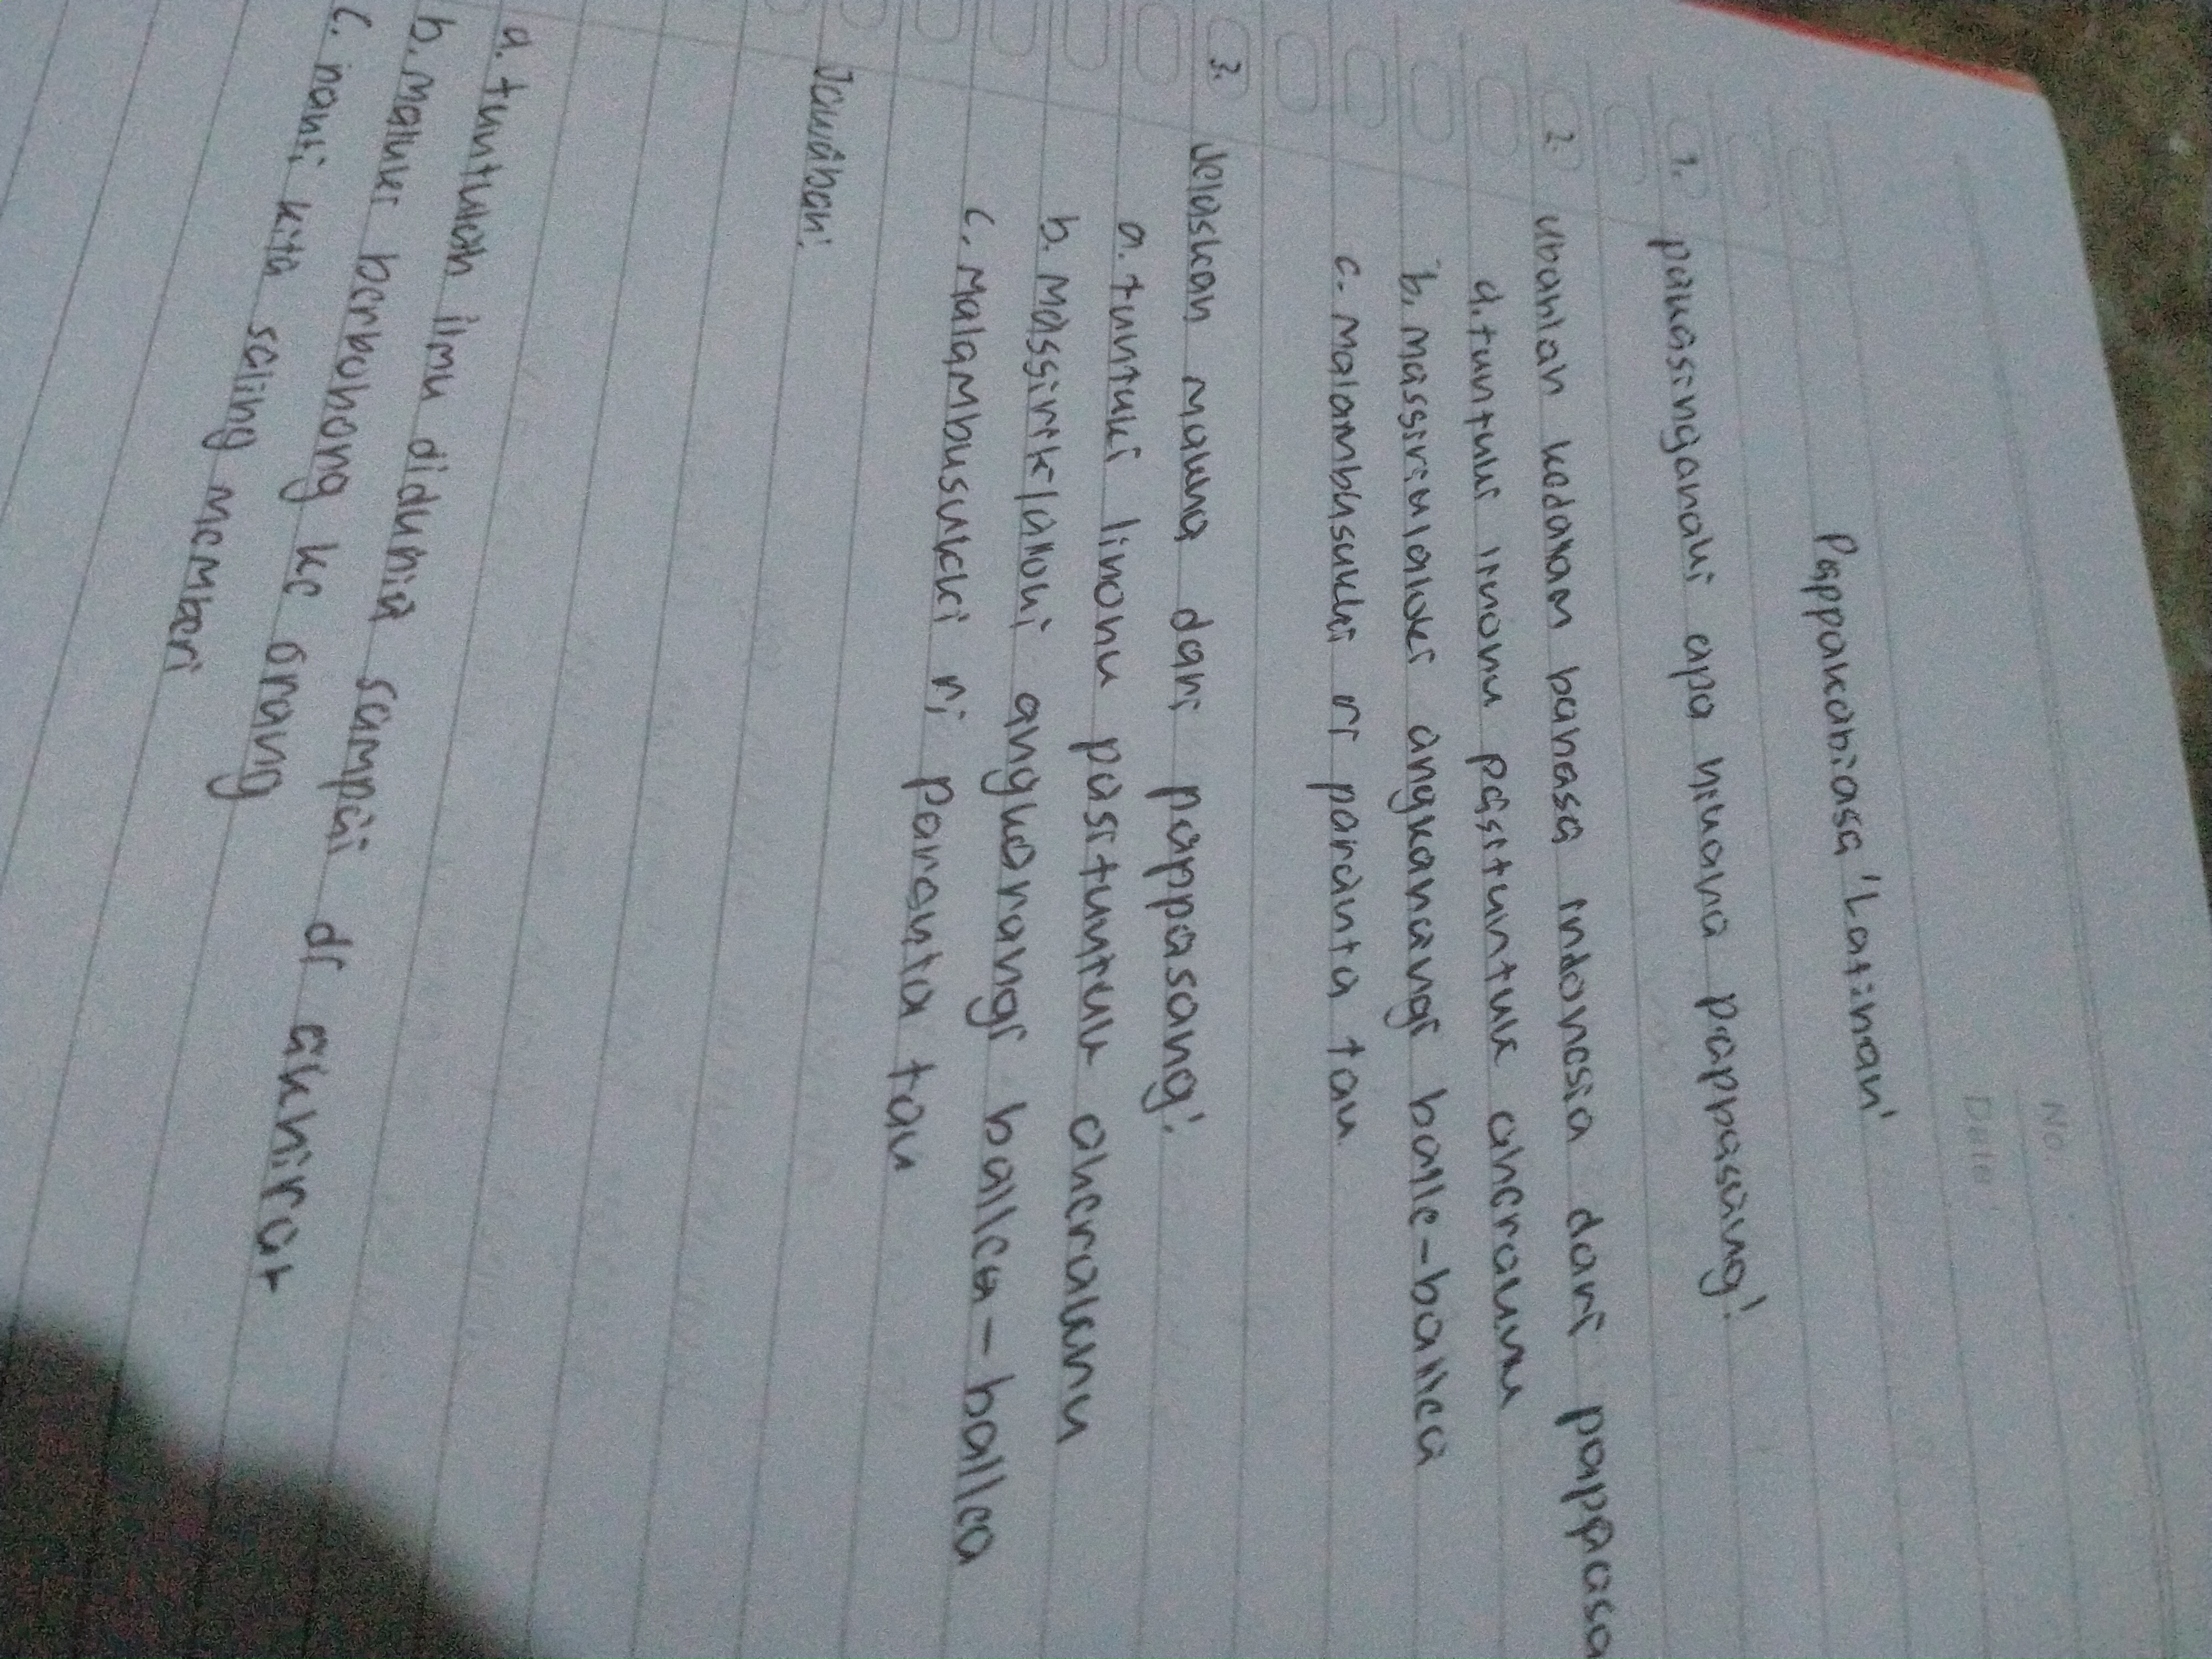 No.
Date
Pappakabiasa 'Latihan'
1. pauasinganaki apa nikana pappasang!
2. Ubahlah kedalam bahasa indonesia dari pappasa
a. tuntuki linonu pasituntuk aheraknu
b. massiriklakoki angkanangi balle-ballea
c. malambusukki ri paranta tau
3. Jelaskan makna dari pappasang!
a. tuntuki linonu pasituntuk aherakknu
b. Massiriklakoki angkarangi ballea-ballea
c. Malambusukki ri paranta tau
Jawaban:
a. tuntulah ilmu didunia sampai di akhirat
b. Maluki berbohong ke orang
c. nanti kita saling memberi